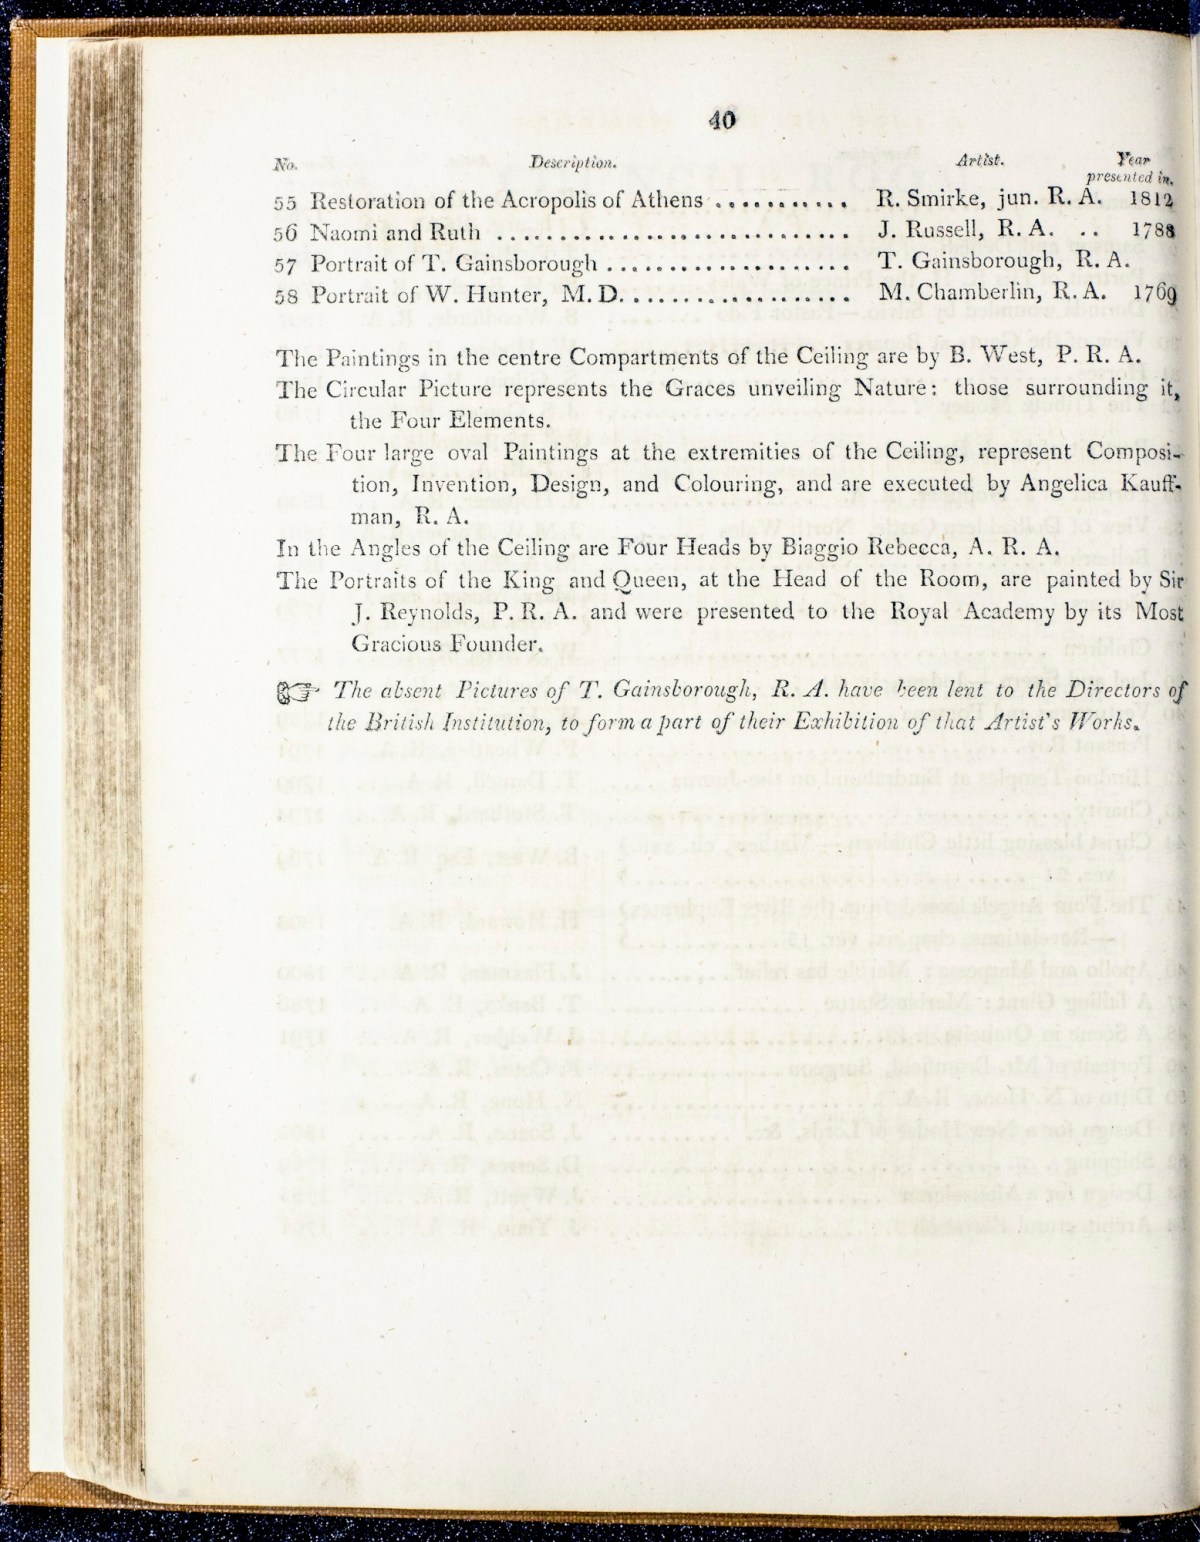 40
No. Description. Artist. Year
presented in.
55 Restoration of the Acropolis of Athens ........... R. Smirke, jun. R. A. 1812
56 Naomi and Ruth ............................. J. Russell, R. A. .. 1788
57 Portrait of T. Gainsborough .................... T. Gainsborough, R. A.
58 Portrait of W. Hunter, M. D. ................... M. Chamberlin, R. A. 1769
The Paintings in the centre Compartments of the Ceiling are by B. West, P. R. A.
The Circular Picture represents the Graces unveiling Nature: those surrounding it,
the Four Elements.
The Four large oval Paintings at the extremities of the Ceiling, represent Composi-
tion, Invention, Design, and Colouring, and are executed by Angelica Kauff-
man, R. A.
In the Angles of the Ceiling are Four Heads by Biaggio Rebecca, A. R. A.
The Portraits of the King and Queen, at the Head of the Room, are painted by Sir
J. Reynolds, P. R. A. and were presented to the Royal Academy by its Most
Gracious Founder.
☞ The absent Pictures of T. Gainsborough, R. A. have been lent to the Directors of
the British Institution, to form a part of their Exhibition of that Artist's Works.